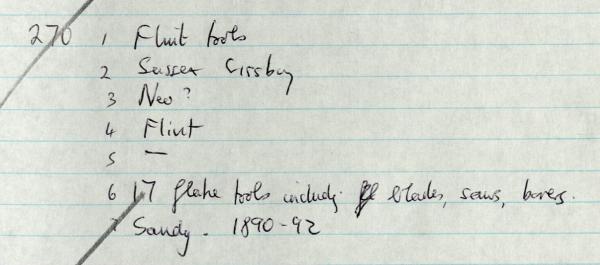 270 1 Flint tools
2 Sussex Cissbury
3 Neo?
4 Flint
5 —
6 17 flake tools includg. blades, saws, borers.
7 Sandy. 1890-92